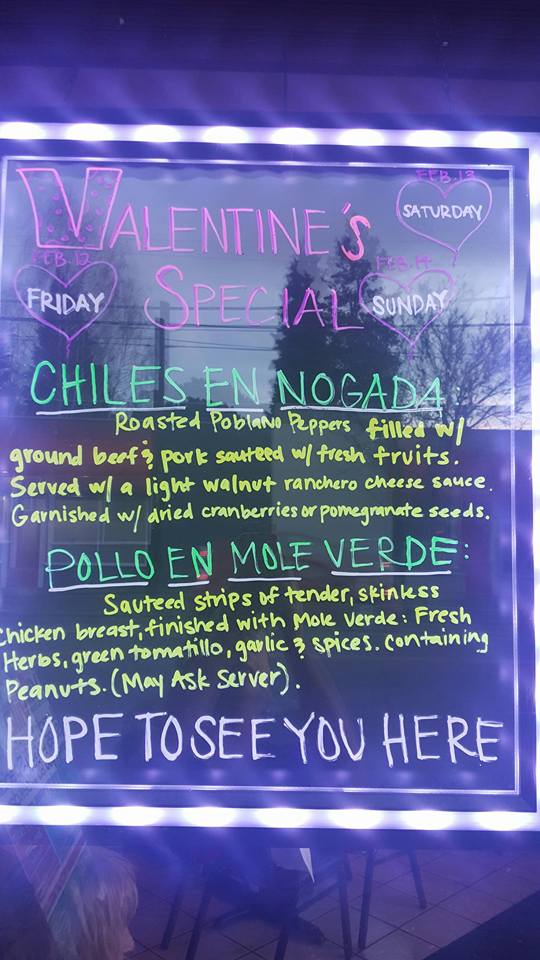 FEB. 13
VALENTINE'S
SATURDAY
FEB. 12
FEB. 14
FRIDAY
SPECIAL
SUNDAY
CHILES EN NOGADA:
Roasted Poblano Peppers filled w/
ground beef & pork sauteed w/ fresh fruits.
Served w/ a light walnut ranchero cheese sauce.
Garnished w/ dried cranberries or pomegranate seeds.
POLLO EN MOLE VERDE:
Sauteed strips of tender, skinless
chicken breast, finished with Mole Verde: Fresh
Herbs, green tomatillo, garlic & spices. containing
Peanuts. (May Ask Server).
HOPE TO SEE YOU HERE